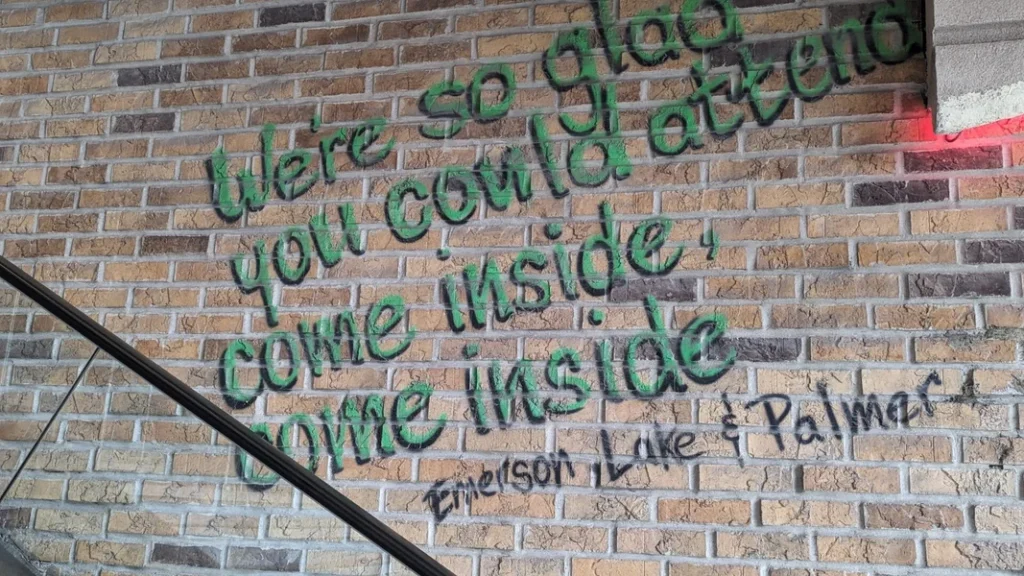 We're so glad
you could attend
come inside,
come inside
Emerson, Lake & Palmer